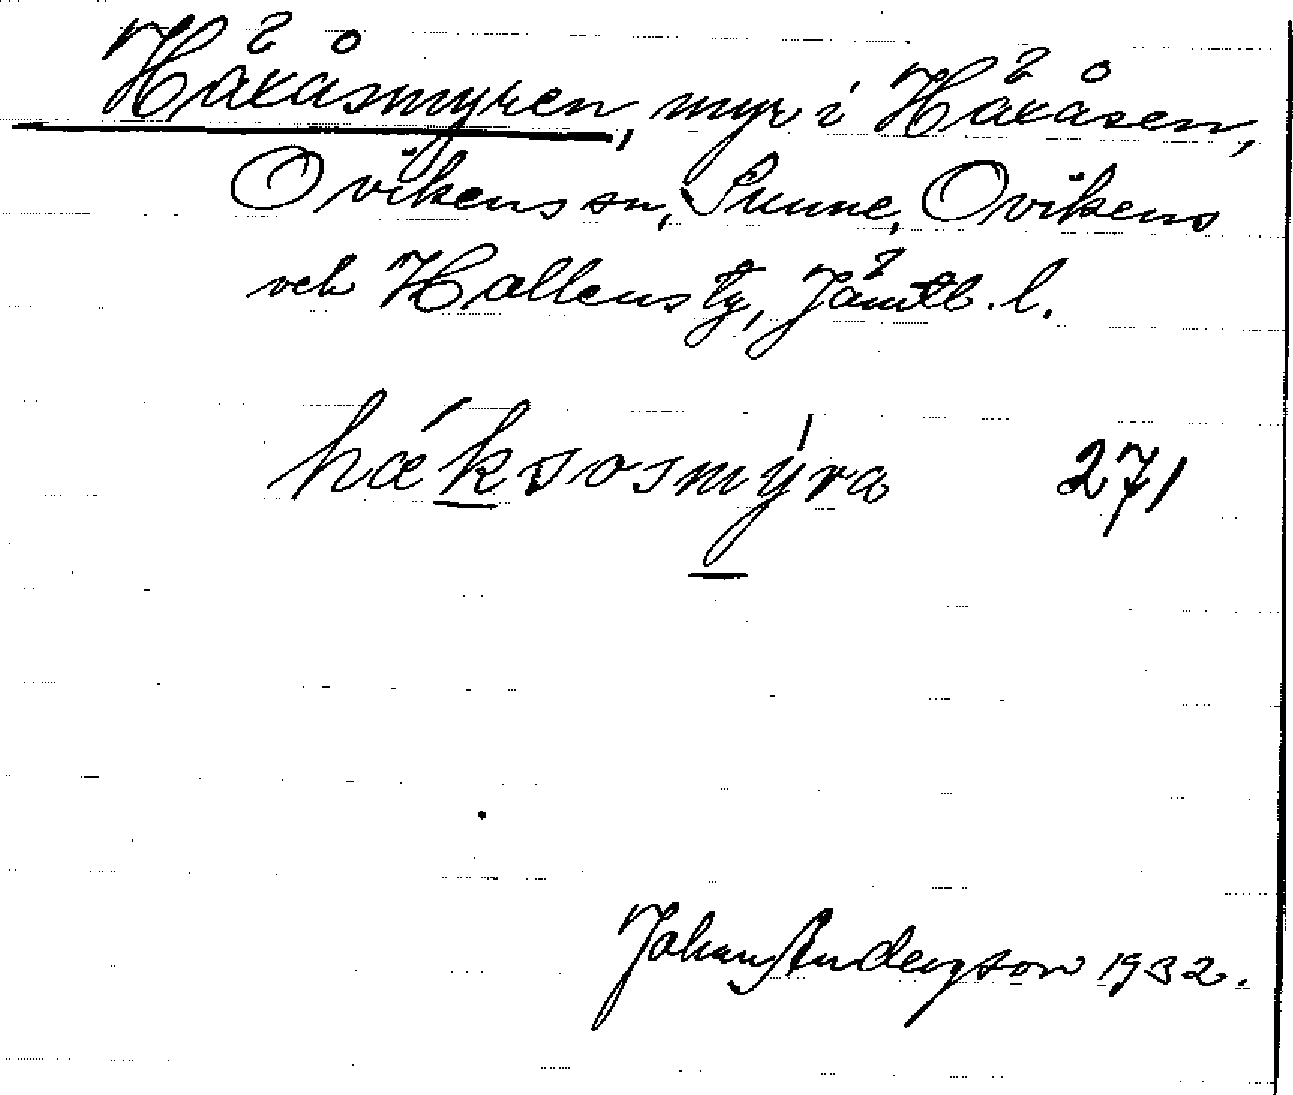 Häxåsmyren, myr i Häxåsen,
Ovikens sn, Sunne, Ovikens
och Hallens tg, Jämtl. l.
hǽksosmýra 271
Johan Andersson 1932.